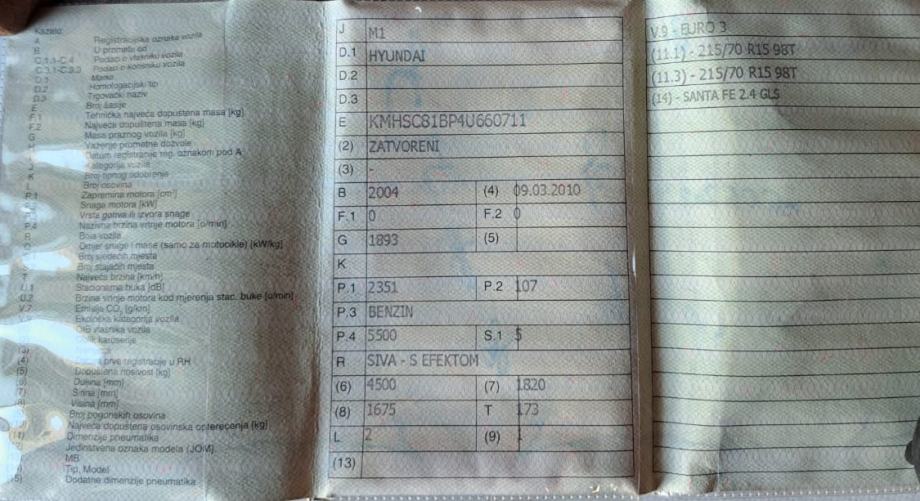 Kazalo:
A Registracijska oznaka vozila
B U prometu od
C.1.1-C.4 Podaci o vlasniku vozila
C.3.1-C.3.3 Podaci o korisniku vozila
D.1 Marka
D.2 Homologacijski tip
D.3 Trgovački naziv
E Broj šasije
F.1 Tehnička najveća dopuštena masa [kg]
F.2 Najveća dopuštena masa [kg]
G Masa praznog vozila [kg]
Važenje prometne dozvole
Datum registracije reg. oznakom pod A
Kategorija vozila
K Broj tipnog odobrenja
Broj osovina
P.1 Zapremina motora [cm³]
Snaga motora [kW]
Vrsta goriva ili izvora snage
P.4 Nazivna brzina vrtnje motora [o/min]
Boja vozila
Omjer snage i mase (samo za motocikle) [kW/kg]
Broj sjedećih mjesta
Broj stajaćih mjesta
T Najveća brzina [km/h]
U.1 Stacionarna buka [dB]
U.2 Brzina vrtnje motora kod mjerenja stac. buke [o/min]
V.7 Emisija CO₂ [g/km]
Ekološka kategorija vozila
OIB vlasnika vozila
karoserije
(4) prve registracije u RH
(5) Dopuštena nosivost [kg]
(6) Duljina [mm]
(7) Širina [mm]
(8) Visina [mm]
Broj pogonskih osovina
Najveća dopuštena osovinska opterećenja [kg]
Dimenzije pneumatika
Jedinstvena oznaka modela (JOM)
MB
Tip, Model
Dodatne dimenzije pneumatika
J M1
D.1 HYUNDAI
D.2
D.3
E KMHSC81BP4U660711
(2) ZATVORENI
(3) -
B 2004 (4) 09.03.2010
F.1 0 F.2 0
G 1893 (5)
K
P.1 2351 P.2 107
P.3 BENZIN
P.4 5500 S.1 5
R SIVA - S EFEKTOM
(6) 4500 (7) 1820
(8) 1675 T 173
L 2 (9) 1
(13)
V.9 - EURO 3
(11.1) - 215/70 R15 98T
(11.3) - 215/70 R15 98T
(14) - SANTA FE 2.4 GLS